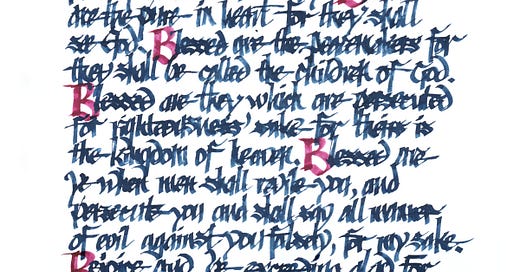 are the pure in heart for they shall
see God. Blessed are the peacemakers for
they shall be called the children of God.
Blessed are they which are persecuted
for righteousness' sake for theirs is
the kingdom of heaven. Blessed are
ye when men shall revile you, and
persecute you and shall say all manner
of evil against you falsely, for my sake.
Rejoice and be exceeding glad for